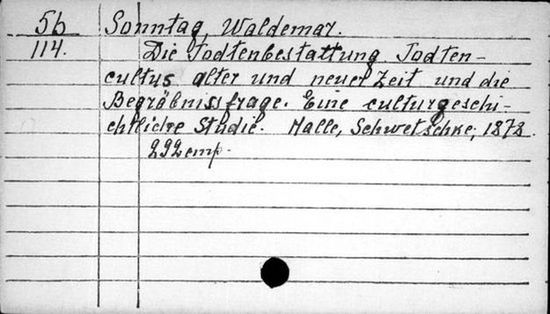 56 Sonntag, Waldemar.
114. Die Todtenbestattung. Todten-
cultus alter und neuer Zeit und die
Begräbnissfrage. Eine culturgeschi-
chtliche Studie. Halle, Schwetschke, 1878.
292 emp.